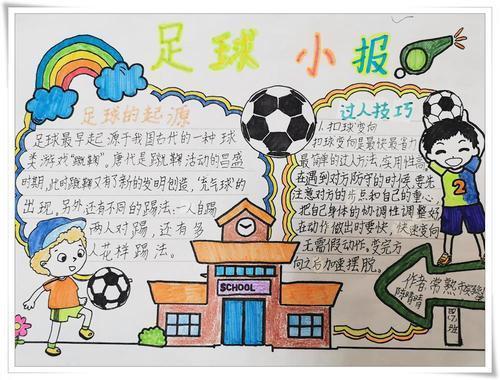 足球小报
足球的起源
足球最早起源于我国古代的一种球
类游戏"蹴鞠"。唐代是蹴鞠活动的昌盛
时期,此时蹴鞠又有了新的发明创造,"充气球"的
出现,另外还有不同的踢法:一人自踢
两人对踢,还有多
人花样踢法。
过人技巧
1.扣球变向
扣球变向是最快最省力
最简单的过人方法,实用性高
在遇到对方防守的时候,要先
注意对方的站点和自己的重心,
把自身体的协调性调整好
在动作做出时要快,快速变向
无需假动作。变完方
向之后加速摆脱。
2
SCHOOL
作者:常熟市
陈晴晴